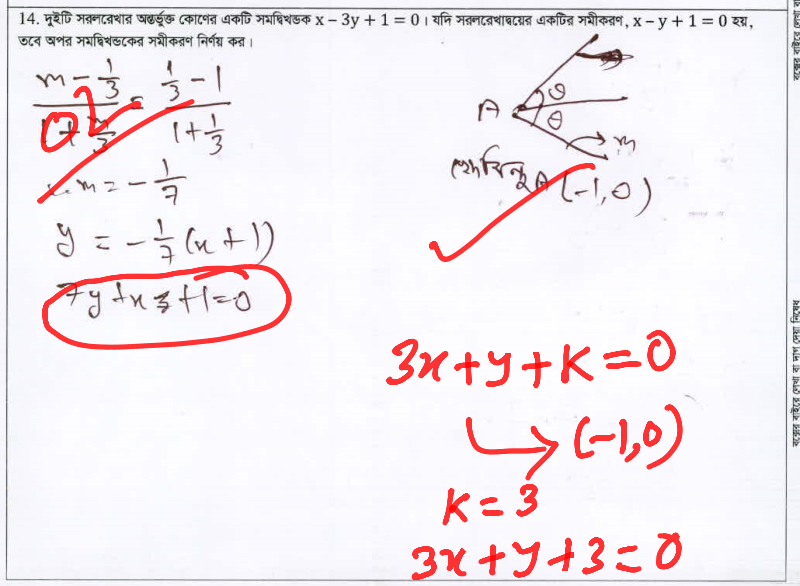 14. দুইটি সরলরেখার অন্তর্ভুক্ত কোণের একটি সমদ্বিখন্ডক x – 3y + 1 = 0। যদি সরলরেখাদ্বয়ের একটির সমীকরণ, x – y + 1 = 0 হয়,
তবে অপর সমদ্বিখন্ডকের সমীকরণ নির্ণয় কর।
(m - 1/3)/(1 + m/3) = (1/3 - 1)/(1 + 1/3)
m = - 1/7
y = - 1/7 (x + 1)
7y + x + 1 = 0
A θ
θ
m
A (-1, 0)
3x + y + K = 0
(-1, 0)
K = 3
3x + y + 3 = 0